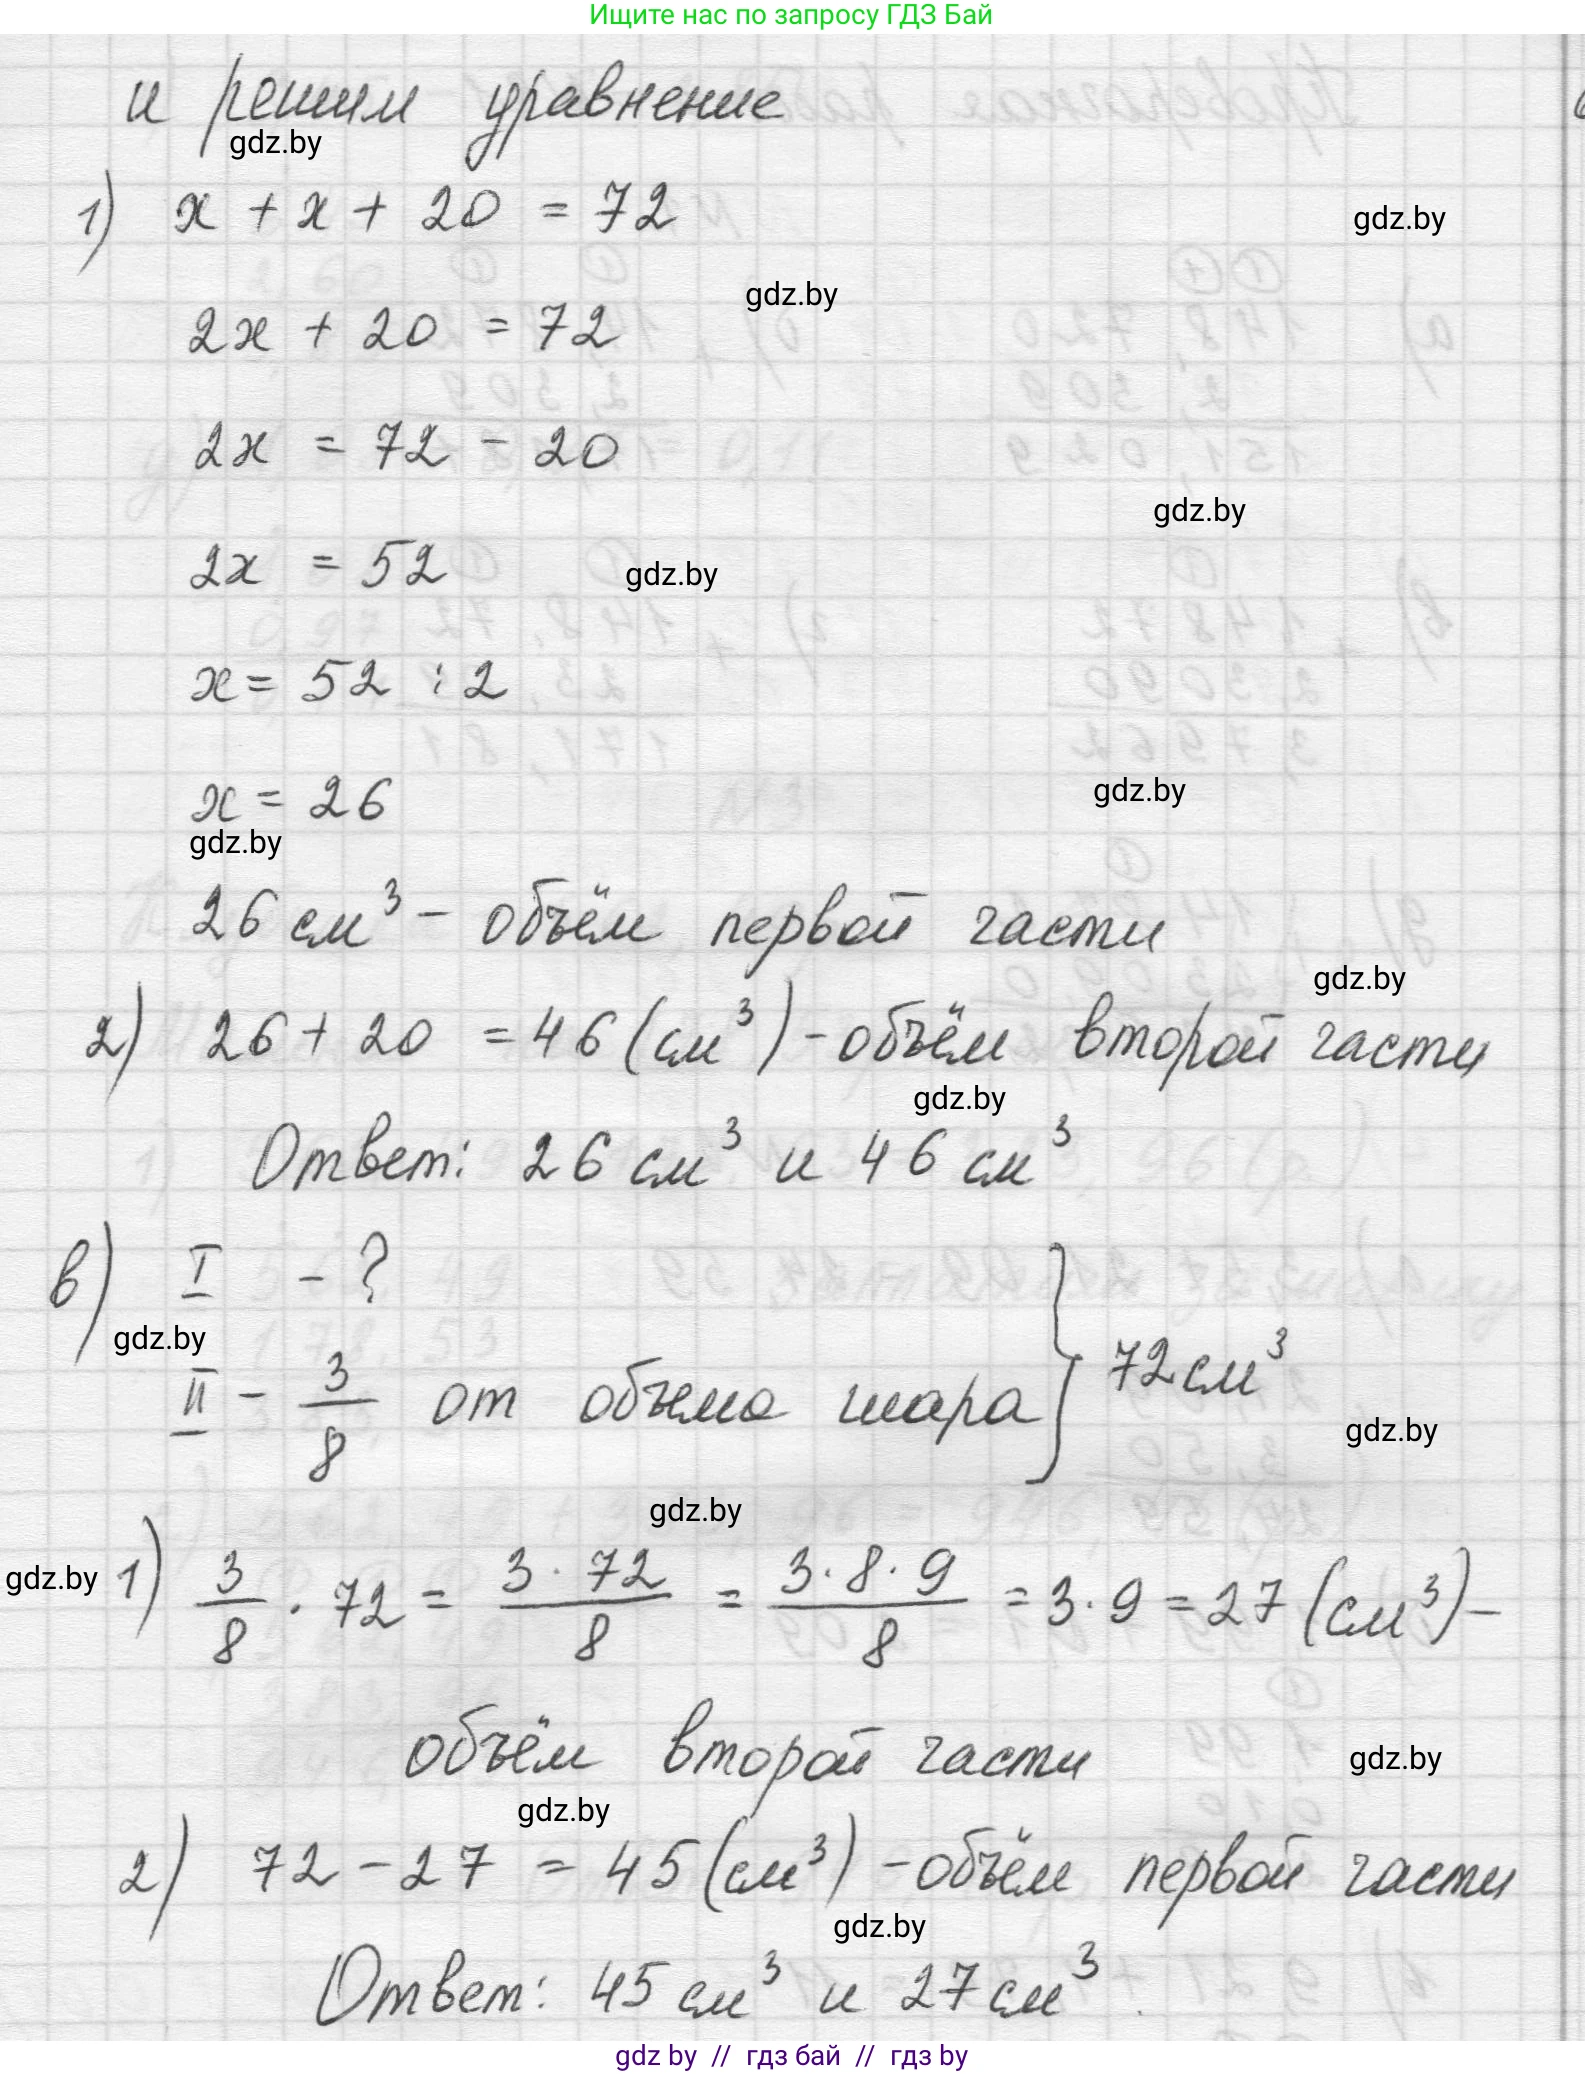 Ищите нас по запросу ГДЗ Бай
и решим уравнение
gdz.by
1) x + x + 20 = 72
gdz.by
gdz.by
2x + 20 = 72
2x = 72 - 20
gdz.by
2x = 52
gdz.by
x = 52 : 2
x = 26
gdz.by
gdz.by
26 см³ - объём первой части
gdz.by
2) 26 + 20 = 46 (см³) - объём второй части
gdz.by
Ответ: 26 см³ и 46 см³
в) I - ?
gdz.by
II - 3/8 от объема шара } 72 см³
gdz.by
gdz.by
gdz.by
1) 3/8 · 72 = (3 · 72)/8 = (3 · 8 · 9)/8 = 3 · 9 = 27 (см³) -
объём второй части
gdz.by
gdz.by
2) 72 - 27 = 45 (см³) - объём первой части
gdz.by
Ответ: 45 см³ и 27 см³.
gdz by // гдз бай // gdz by